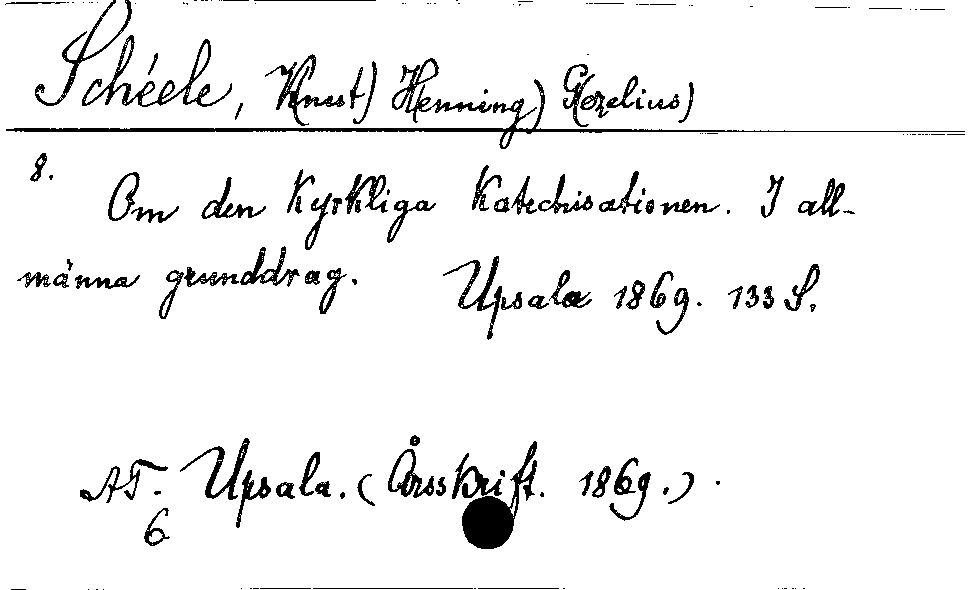 Schéele, K(nut) H(enning) G(ezelius)
8.
Om den kyrkliga katechisationen. I all-
männa grunddrag. Upsala 1869. 133 S.
AT. Upsala. (Årsskrift. 1869.).
6